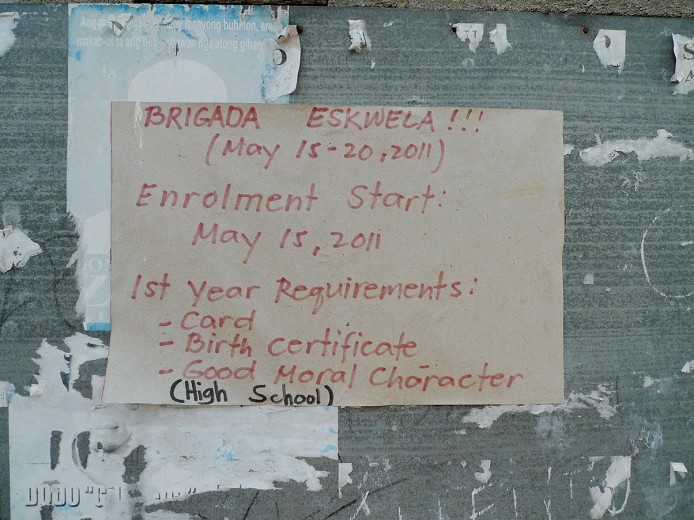 BRIGADA ESKWELA!!!
(May 15-20, 2011)
Enrolment Start:
May 15, 2011
1st Year Requirements:
- Card
- Birth Certificate
- Good Moral Character
(High School)